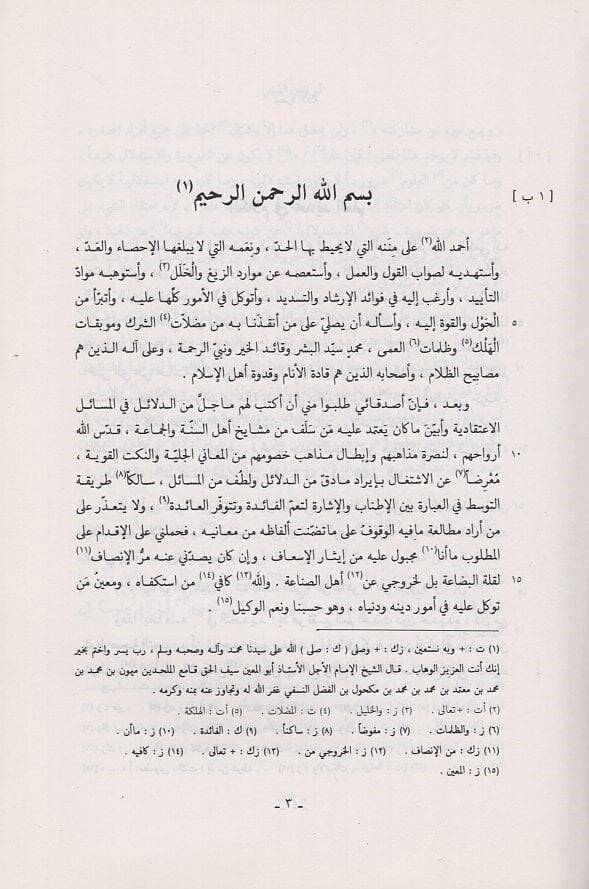 [ ١ ب ] بسم الله الرحمن الرحيم(١)
أحمد الله(٢) على مِنَنه التي لا يحيط بها الحدّ ، ونِعَمه التي لا يبلغها الإحصاء والعَدّ ،
وأستهديـه لصواب القول والعمل ، وأستعصمه عن موارد الزيغ والخَلَل(٣) ، وأستوهبـه موادّ
التأييد ، وأرغب إليه في فوائد الإرشاد والتسديد ، وأتوكل في الأمور كلّها عليـه ، وأتبرّأ من
٥ الحَوْل والقوة إليـه ، وأسألـه أن يصلّي على من أنقذَنا بـه من مضلّات(٤) الشرك وموبقات
الهُلْك(٥) وظلمات(٦) العمى ، محمدٍ سيّد البشر وقائد الخير ونبيّ الرحمة ، وعلى آلـه الذين هم
مصابيح الظلام ، وأصحابه الذين هم قادة الأنام وقدوة أهل الإسلام .
وبعد ، فإنّ أصدقائي طلبوا مني أن أكتب لهم ماجلّ من الدلائل في المسائل
الاعتقادية وأبيّنَ ماكان يَعتمد عليـه مَن سَلَف من مشايخ أهل السنّة والجماعة ، قدّس الله
١٠ أرواحهم ، لنصرة مذاهبهم وإبطال مذاهب خصومهم من المعاني الجليّة والنكت القوية ،
مُعْرِضاً(٧) عن الاشتغال بإيراد مادقّ من الدلائل ولطُف من المسائل ، سالكاً(٨) طريقة
التوسط في العبارة بين الإطناب والإشارة لتعمّ الفائدة وتتوفّر العائدة(٩) ، ولا يتعذّر على
من أراد مطالعة مافيه الوقوفُ على ماتضمّنت ألفاظه من معانيـه ، فحملني على الإقدام على
المطلوب ماأنا(١٠) مجبول عليه من إيثار الإسعاف ، وإن كان يصدّني عنـه مرُّ الإنصاف(١١)
١٥ لقلة البضاعة بل لخروجي عن(١٢) أهل الصناعة . والله(١٣) كافي(١٤) من استكفاه ، ومعينُ مَن
توكل عليه في أمور دينه ودنياه ، وهو حسبنا ونعم الوكيل(١٥) .
(١) ت : + وبه نستعين ، زك : + وصلى ( ك : صلى ) الله على سيدنا محمـد وآلـه وصحبـه وسلم ، رب يسر واختم بخير
إنك أنت العزيز الوهاب . قال الشيخ الإمام الأجل الأستاذ أبو المعين سيف الحق قامع الملحـدين ميمون بن محمـد بن
محمد بن معتمد بن محمد بن محمد بن مكحول بن الفضل النسفي غفر الله له وتجاوز عنه بمنه وكرمه .
(٢) أت : +تعالى . (٣) ز : والخليل . (٤) ت : المضلات . (٥) أت : الهلكة .
(٦) ز : والظلمات . (٧) ز : مفوضاً . (٨) ز : ساكناً . (٩) ك : الفائدة . (١٠) ز : ماأن .
(١١) زك : من الإنصاف . (١٢) ز : الخروجي من . (١٣) زك : + تعالى . (١٤) ز : كافيه .
(١٥) ز : المعين .
ـ ٣ ـ